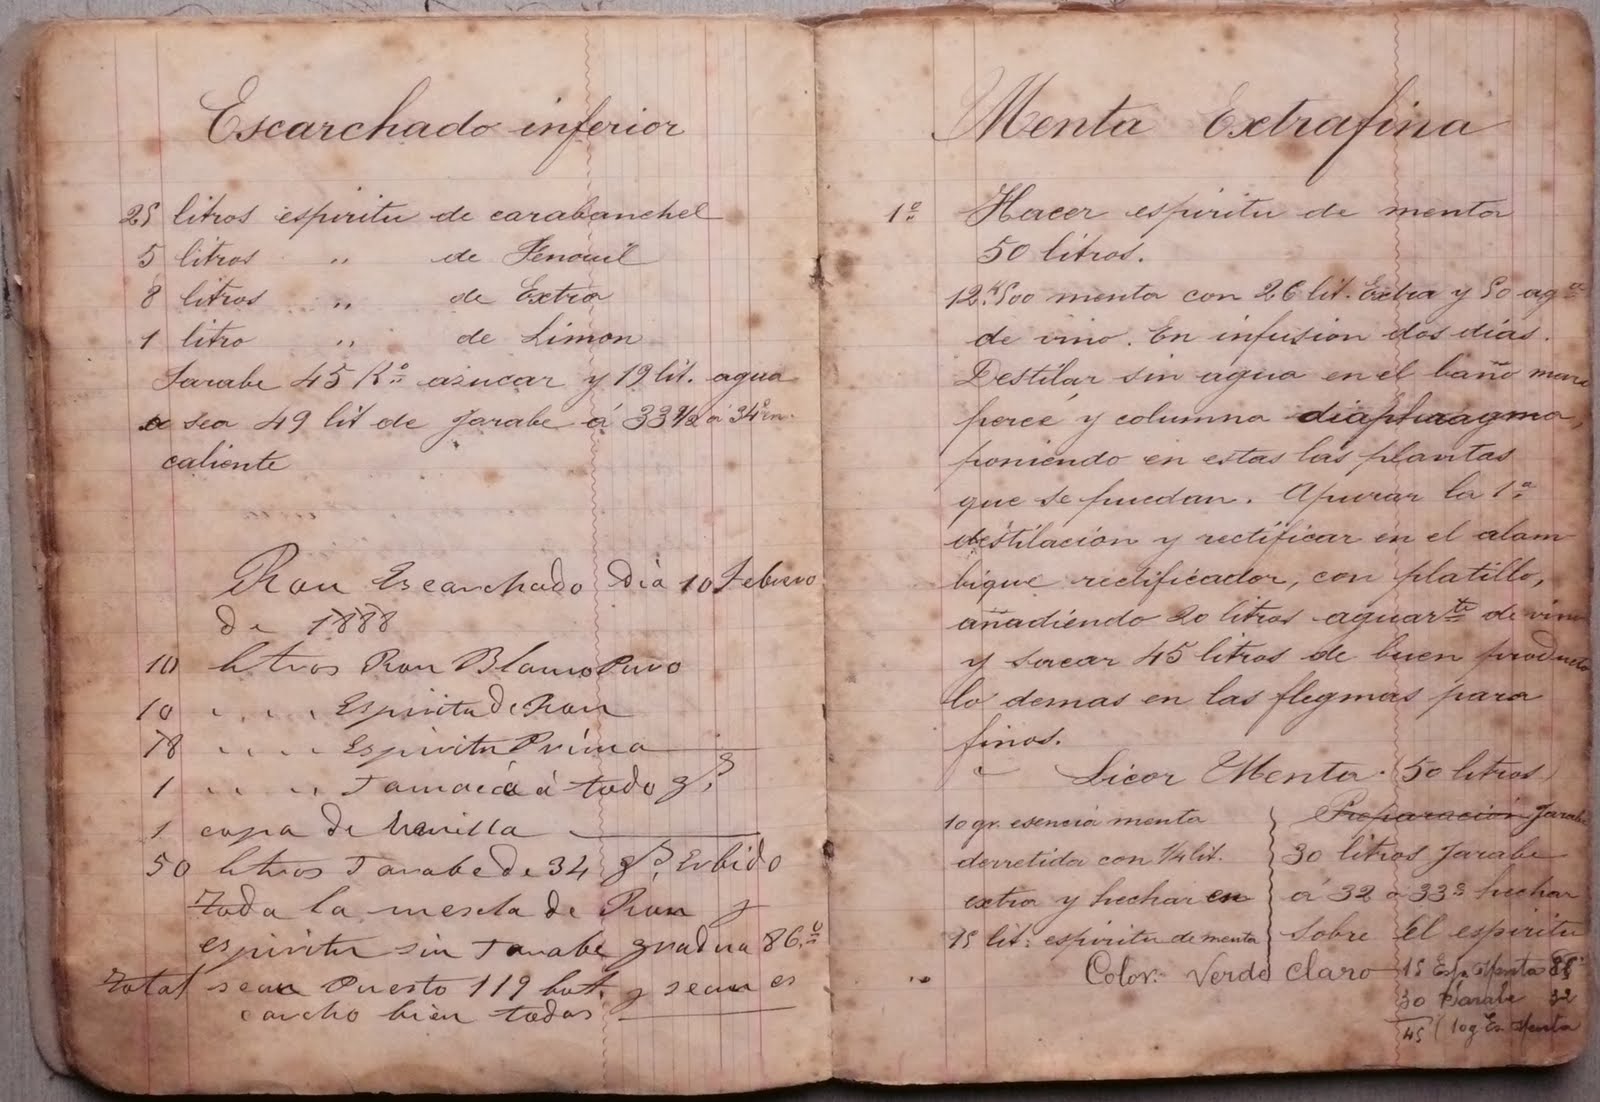 Escarchado inferior
25 litros espiritu de carabanchel
5 litros " de Fenouil
8 litros " de Extra
1 litro " de Limon
Jarabe 45 Ko azucar y 19 lit. agua
o sea 49 lit de jarabe á 33 1/2 a 34º en
caliente
Ron Escarchado Dia 10 Febrero
De 1888
10 litros Ron Blanco Puro
10 " " Espiritu De Ron
78 " " Espiritu Prima
1 " " Jamaica á todo
1 copa De Vanilla
50 litros Jarabe De 34
toda la mescla de Ron y
espiritu sin Jarabe 86.º
total sean Puesto 119 bot. y sean es
carcho bien todas
Menta Extrafina
1º Hacer espiritu de menta
50 litros.
12 K 500 menta con 26 lit. Extra y 50 agte
de vino. En infusion dos dias.
Destilar sin agua en el baño maria
percé y columna diaphragma,
poniendo en estas las plantas
que se puedan. Apurar la 1ª
destilación y rectificar en el alam
bique rectificador, con platillo,
añadiendo 20 litros aguarte de vino
y sacar 45 litros de buen producto
lo demas en las flegmas para
finos.
" Licor Menta. 50 litros
10 gr. esencia menta
derretida con 1/4 lit.
extra y hechar en
15 lit: espiritu de menta
Preparación Jarabe
30 litros Jarabe
á 32 a 33º hechar
sobre el espiritu
Color: Verde Claro
15 Esp. Menta 85º
30 Jarabe 32
45 (10 g Es. Menta